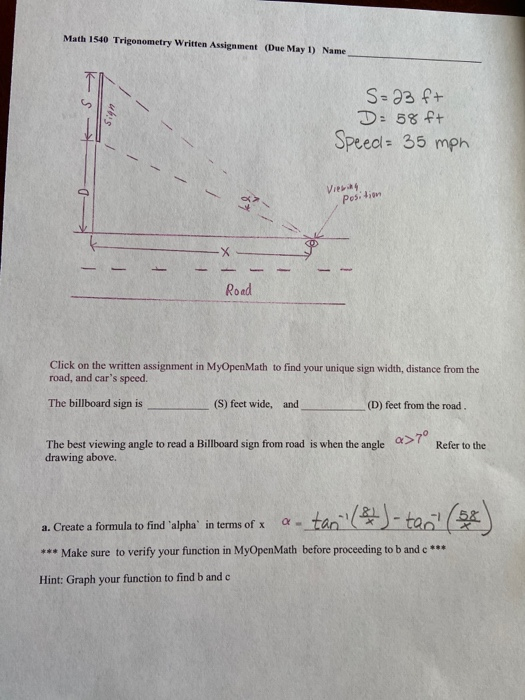 Math 1540 Trigonometry Written Assignment (Due May 1) Name
S = 23 ft
D = 58 ft
Speed = 35 mph
S
Sign
D
α
Viewing
Position
X
Road
Click on the written assignment in MyOpenMath to find your unique sign width, distance from the
road, and car's speed.
The billboard sign is (S) feet wide, and (D) feet from the road.
The best viewing angle to read a Billboard sign from road is when the angle α>7° Refer to the
drawing above.
a. Create a formula to find 'alpha' in terms of x α = tan⁻¹(81/x) - tan⁻¹(58/x)
*** Make sure to verify your function in MyOpenMath before proceeding to b and c ***
Hint: Graph your function to find b and c